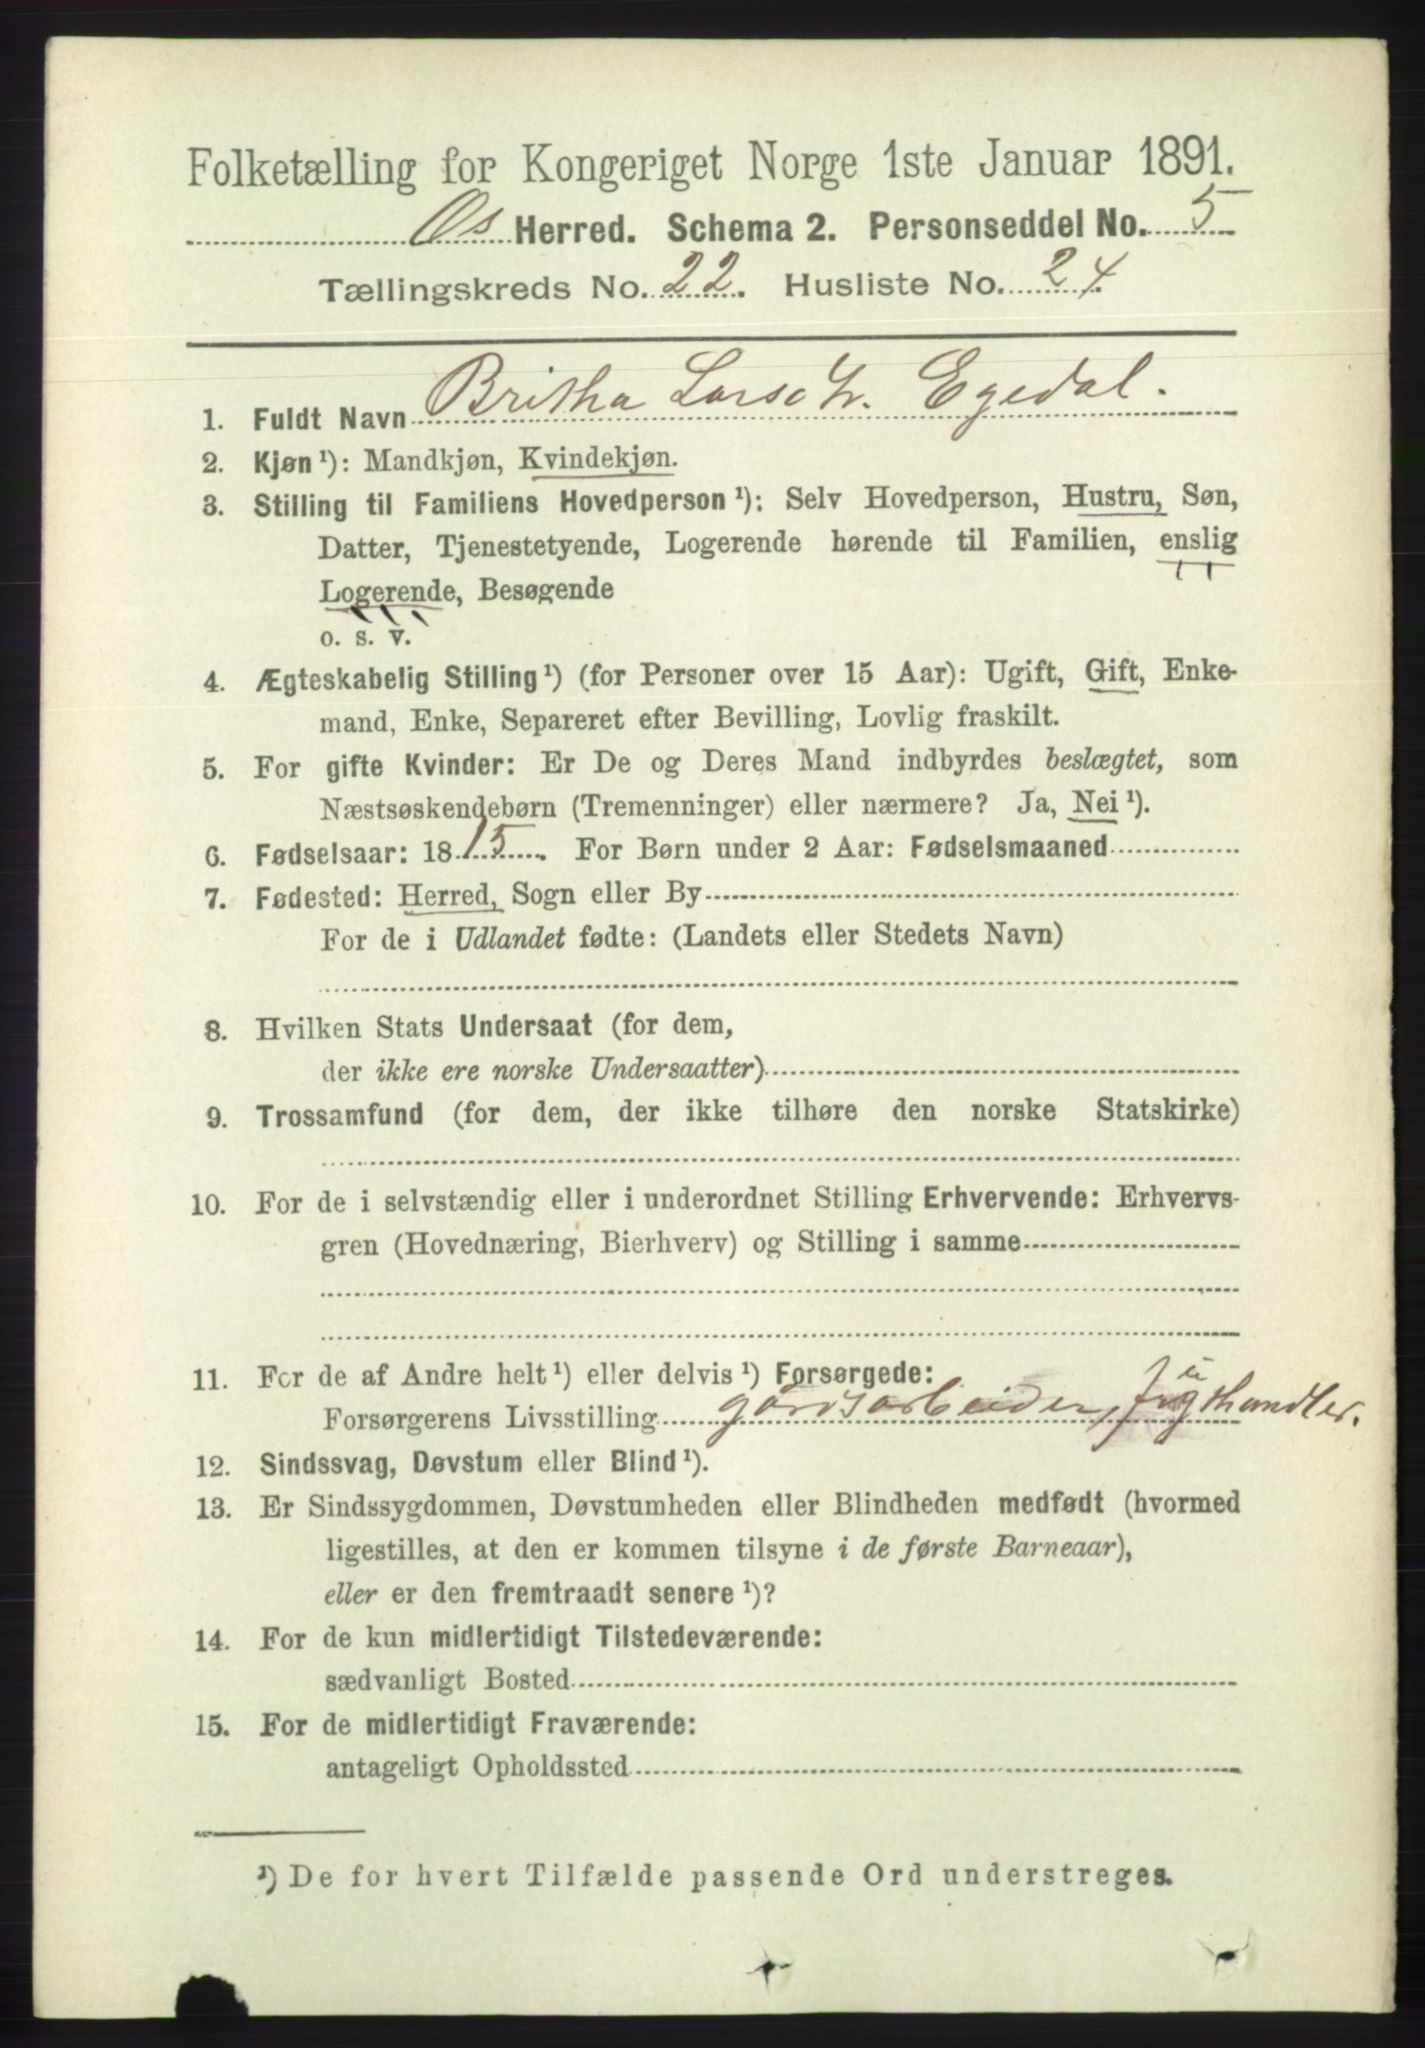 Folketælling for Kongeriget Norge 1ste Januar 1891.
Os Herred. Schema 2. Personseddel No. 5
Tællingskreds No. 22. Husliste No. 24.
1. Fuldt Navn Britha Larsdtr. Egedal.
2. Kjøn ¹): Mandkjøn, Kvindekjøn.
3. Stilling til Familiens Hovedperson ¹): Selv Hovedperson, Hustru, Søn,
Datter, Tjenestetyende, Logerende hørende til Familien, enslig
Logerende, Besøgende
o. s. v.
4. Ægteskabelig Stilling ¹) (for Personer over 15 Aar): Ugift, Gift, Enke-
mand, Enke, Separeret efter Bevilling, Lovlig fraskilt.
5. For gifte Kvinder: Er De og Deres Mand indbyrdes beslægtet, som
Næstsøskendebørn (Tremenninger) eller nærmere? Ja, Nei ¹).
6. Fødselsaar: 1815. For Børn under 2 Aar: Fødselsmaaned
7. Fødested: Herred, Sogn eller By
For de i Udlandet fødte: (Landets eller Stedets Navn)
8. Hvilken Stats Undersaat (for dem,
der ikke ere norske Undersaatter)
9. Trossamfund (for dem, der ikke tilhøre den norske Statskirke)
10. For de i selvstændig eller i underordnet Stilling Erhvervende: Erhvervs-
gren (Hovednæring, Bierhverv) og Stilling i samme
11. For de af Andre helt ¹) eller delvis ¹) Forsørgede:
Forsørgerens Livsstilling gårdsarbeider,
12. Sindssvag, Døvstum eller Blind ¹).
13. Er Sindssygdommen, Døvstumheden eller Blindheden medfødt (hvormed
ligestilles, at den er kommen tilsyne i de første Barneaar),
eller er den fremtraadt senere ¹)?
14. For de kun midlertidigt Tilstedeværende:
sædvanligt Bosted
15. For de midlertidigt Fraværende:
antageligt Opholdssted
¹) De for hvert Tilfælde passende Ord understreges.